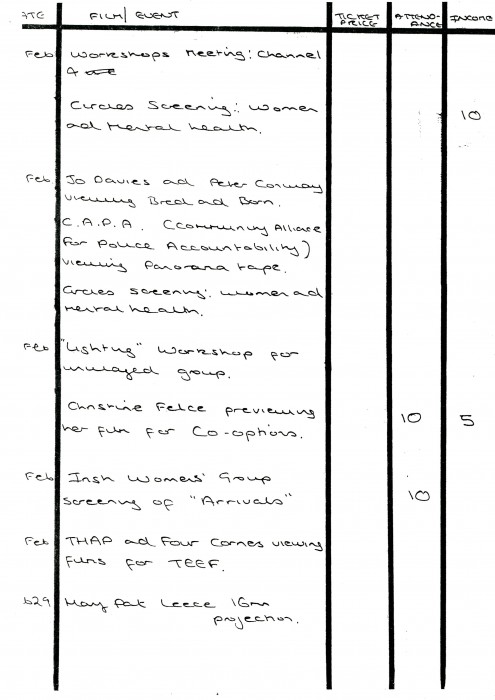 ATE FILM/EVENT TICKET PRICE ATTEND-ANCE INCOME
Feb Workshops Meeting: Channel
4
Circles Screening: Women 10
ad Mental health.
Feb Jo Davies ad Peter Conway
viewing Bred ad Born.
C.A.P.A. (Community Alliance
for Police Accountability)
viewing Panorama tape.
Circles screening: women ad
mental health.
Feb "Lighting" Workshop for
unwaged group.
Christine Felce previewing 10 5
her film for Co-options.
Feb Irish Women's Group
screening of "Arrivals" 10
Feb THAP ad Four Corners viewing
films for TEEF.
b29 Mary Pat Leece 16mm
projection.